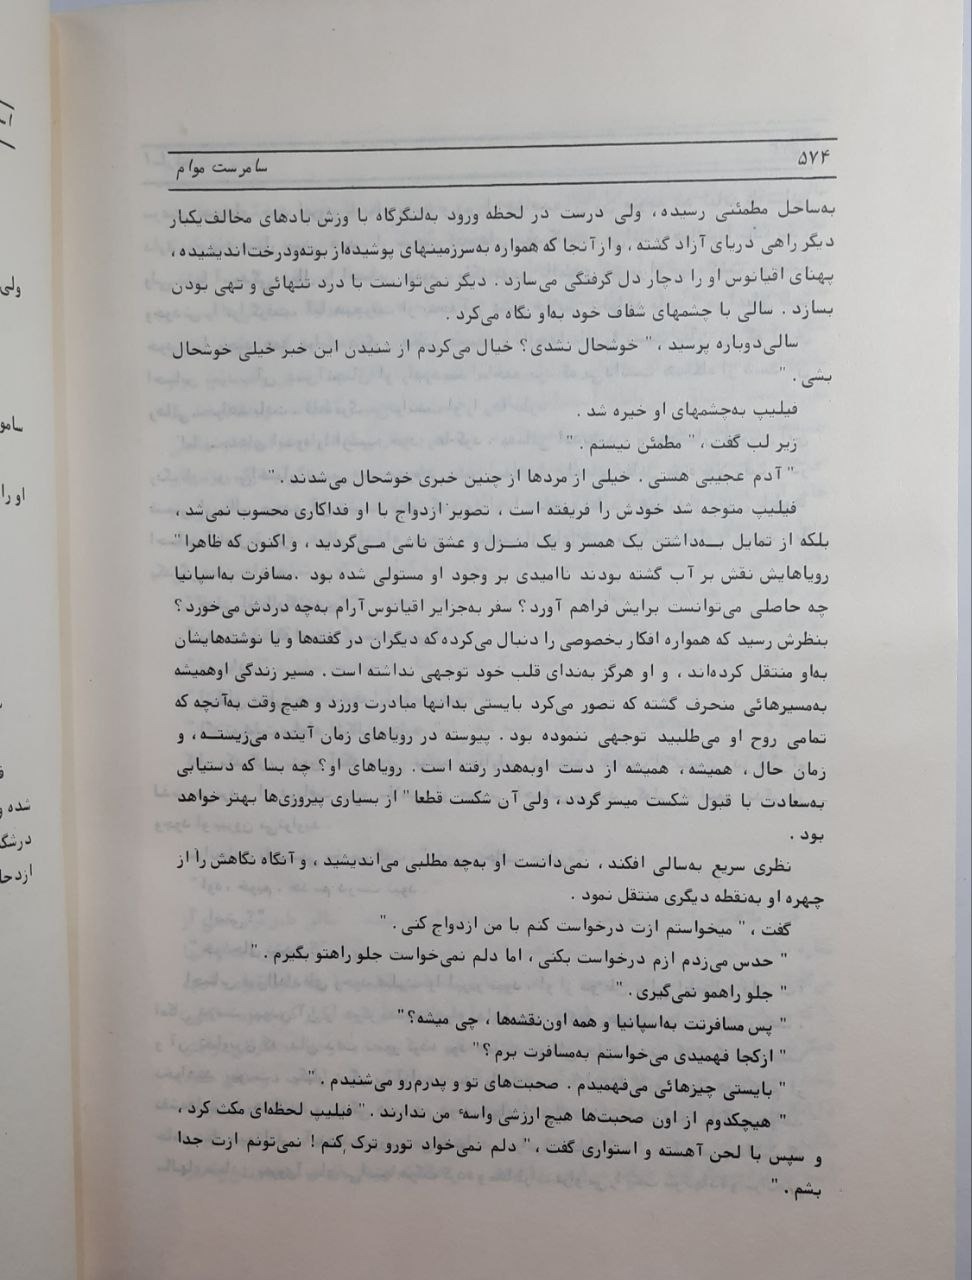 ۵۷۴
سامرست موام
به‌ساحل مطمئنی رسیده، ولی درست در لحظه ورود به‌لنگرگاه با وزش بادهای مخالف‌یکبار
دیگر راهی دریای آزاد گشته، و از آنجا که همواره به‌سرزمینهای پوشیده‌از بوته‌ودرخت‌اندیشیده،
پهنای اقیانوس او را دچار دل گرفتگی می‌سازد. دیگر نمی‌توانست با درد تنهائی و تهی بودن
بسازد. سالی با چشمهای شفاف خود به‌او نگاه می‌کرد.
سالی‌دوباره پرسید، " خوشحال نشدی؟ خیال می‌کردم از شنیدن این خبر خیلی خوشحال
بشی. "
فیلیپ به‌چشمهای او خیره شد.
زیر لب گفت، " مطمئن نیستم. "
" آدم عجیبی هستی. خیلی از مردها از چنین خبری خوشحال می‌شدند. "
فیلیپ متوجه شد خودش را فریفته است، تصویر ازدواج با او فداکاری محسوب نمی‌شد،
بلکه از تمایل بـه‌داشتن یک همسر و یک منـزل و عشق ناشی مـی‌گردید، و اکنون که ظاهرا"
رویاهایش نقش بر آب گشته بودند ناامیدی بر وجود او مستولی شده بود. مسافرت به‌اسپانیا
چه حاصلی می‌توانست برایش فراهم آورد؟ سفر به‌جزایر اقیانوس آرام به‌چه دردش می‌خورد؟
بنظرش رسید که همواره افکار بخصوصی را دنبال می‌کرده که دیگران در گفته‌ها و یا نوشته‌هایشان
به‌او منتقل کرده‌اند، و او هرگز به‌ندای قلب خود توجهی نداشته است. مسیر زندگی اوهمیشه
به‌مسیرهائی منحرف گشته که تصور می‌کرد بایستی بدانها مبادرت ورزد و هیچ وقت به‌آنچه که
تمامی روح او می‌طلبید توجهی ننموده بود. پیوسته در رویاهای زمان آینده می‌زیستـه، و
زمان حال، همیشه، همیشه از دست اوبه‌هدر رفته است. رویاهای او؟ چه بسا که دستیابی
به‌سعادت با قبول شکست میسر گردد، ولی آن شکست قطعا" از بسیاری پیروزی‌ها بهتر خواهد
بود.
نظری سریع به‌سالی افکند، نمی‌دانست او به‌چه مطلبی می‌اندیشید، و آنگاه نگاهش را از
چهره او به‌نقطه دیگری منتقل نمود.
گفت، " میخواستم ازت درخواست کنم با من ازدواج کنی. "
" حدس می‌زدم ازم درخواست بکنی، اما دلم نمی‌خواست جلو راهتو بگیرم. "
" جلو راهمو نمی‌گیری. "
" پس مسافرتت به‌اسپانیا و همه اون‌نقشه‌ها، چی میشه؟ "
" ازکجا فهمیدی می‌خواستم به‌مسافرت برم؟ "
" بایستی چیزهائی می‌فهمیدم. صحبت‌های تو و پدرم‌رو می‌شنیدم. "
" هیچکدوم از اون صحبت‌ها هیچ ارزشی واسهٔ من ندارند. " فیلیپ لحظه‌ای مکث کرد،
و سپس با لحن آهسته و استواری گفت، " دلم نمی‌خواد تورو ترک کنم! نمی‌تونم ازت جدا
بشم. "
ولی
سامو
او را
شده و
درشگ